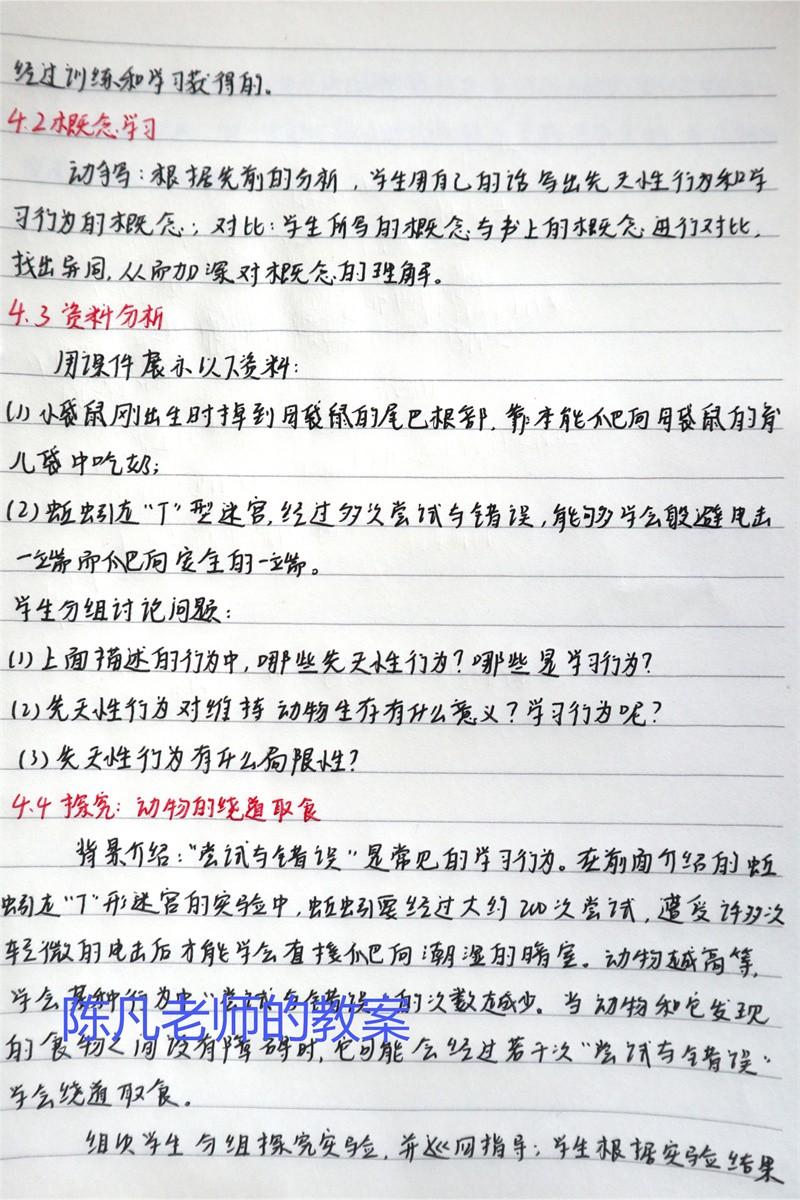 经过训练和学习获得的。
4.2 概念学习
动手写：根据先前的分析，学生用自己的话写出先天性行为和学
习行为的概念；对比：学生所写的概念与书上的概念进行对比，
找出异同，从而加深对概念的理解。
4.3 资料分析
用课件展示以下资料：
(1) 小袋鼠刚出生时掉到母袋鼠的尾巴根部，靠本能爬向母袋鼠的育
儿袋中吃奶；
(2) 蚯蚓走“T”型迷宫，经过多次尝试与错误，能够学会躲避电击
一端而爬向安全的一端。
学生分组讨论问题：
(1) 上面描述的行为中，哪些先天性行为？哪些是学习行为？
(2) 先天性行为对维持动物生存有什么意义？学习行为呢？
(3) 先天性行为有什么局限性？
4.4 探究：动物的绕道取食
背景介绍：“尝试与错误”是常见的学习行为。在前面介绍的蚯
蚓走“T”形迷宫的实验中，蚯蚓要经过大约200次尝试，遭受许多次
轻微的电击后才能学会直接爬向潮湿的暗室。动物越高等，
学会某种行为中“尝试与错误”的次数越少。当动物和它发现
陈凡老师的教案
的食物之间没有障碍时，它可能会经过若干次“尝试与错误”
学会绕道取食。
组织学生分组探究实验，并巡回指导；学生根据实验结果